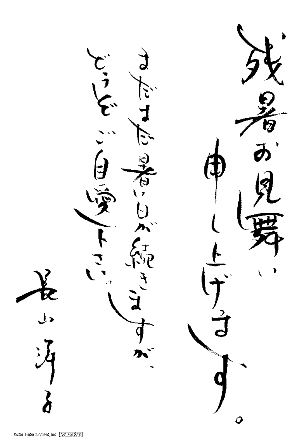 残暑お見舞い
申し上げます。
まだまだ暑い日が続きますが、
どうぞご自愛下さい。
長山洋子